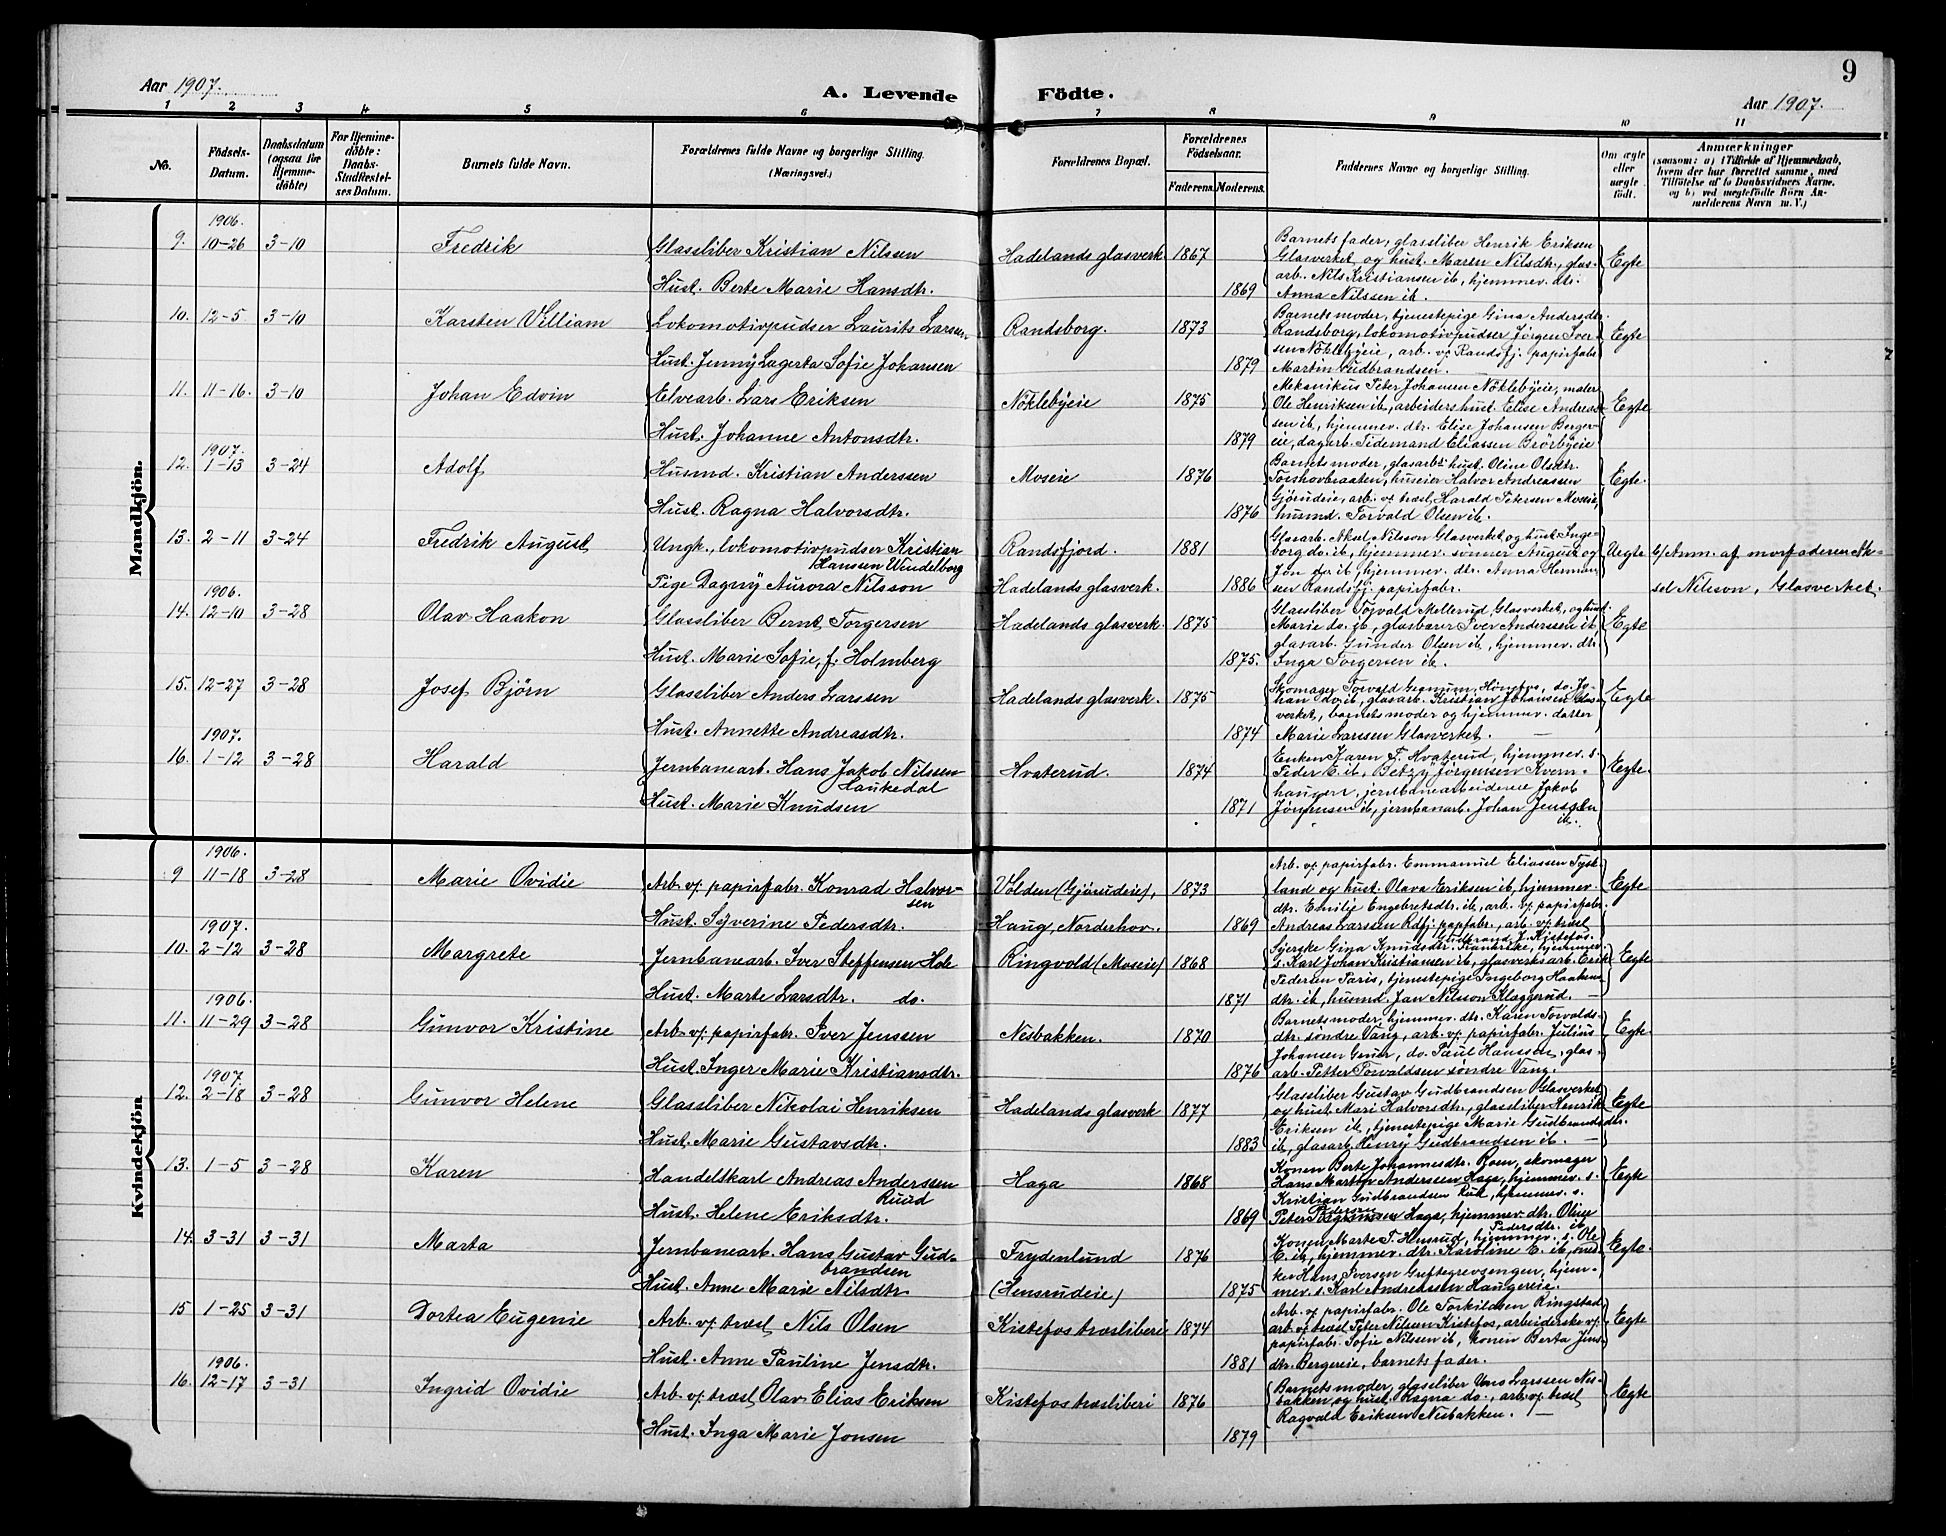 9
Aar 1907.
A. Levende Födte.
Aar 1907.
1 2 3 4 5 6 7 8 9 10 11
No.
Födsels-Datum.
Daabsdatum (ogsaa for Hjemme-döbte)
For Hjemme-döbte: Daabs-Stadfæstel-ses Datum.
Barnets fulde Navn.
Forældrenes fulde Navne og borgerlige Stilling. (Næringsvei.)
Forældrenes Bopæl.
Forældrenes Födselsaar.
Faderens. Moderens.
Faddernes Navne og borgerlige Stilling.
Om ægte eller uægte födt.
Anmærkninger
(saasom: a) i Tilfælde af Hjemmedaab, hvem der har forrettet samme, med Tilföielse af to Daabsvidners Navne, og b) ved uægtefödte Börn An-melderens Navn m. V.)
Mandkjön.
1906.
9. 10-26 3-10 Fredrik Glassliber Kristian Nilssen Hadelands glasverk 1867
Hust. Berte Marie Hansdtr. 1869
Barnets fader, glassliber Henrik Eriksen
Glasverket og hust. Maren Nilsdtr., glas-
arb. Nils Kristiansen ib, hjemmev. dtr.
Anna Nilssen ib.
Egte
10. 12-5 3-10 Karsten Villiam Lokomotivpudser Laurits Larsen Randsborg. 1873
Hust. Jenny Lagerta Sofie Johansen 1879
Barnets moder, tjenestepige Gina Andersdtr.
Randsborg, lokomotivpudser Jørgen Iver-
sen Nöklebyeie, arb. v. Randsfj. papirfabr
Martin Gudbrandsen.
Egte
11. 11-16. 3-10 Johan Edvin Elvearb. Lars Eriksen Nöklebyeie 1875
Hust. Johanne Antonsdtr. 1879
Mekanikus Peter Johansen Nöklebyeie, maler
Ole Henriksen ib, arbeiders hust. Elise Andreas-
sen ib, hjemmev. dtr. Elise Johansen Berger-
eie, dagarb. Tidemand Eliassen Brörbyeie
Egte
1907.
12. 1-13 3-24 Adolf Husmd. Kristian Anderssen Moseie 1876
Hust. Ragna Halvorsdtr. 1876
Barnets moder, glasarbs hust. Oline Olsdtr.
Torshovbraaten, huseier Halvor Andreassen
Gjörudeie, arb. v. træsl. Harald Petersen Moseie,
husmd. Torvald Olsen ib.
Egte.
13. 2-11 3-24 Fredrik August Ungk., lokomotivpudser Kristian
Hanssen Wendelborg
Randsfjord. 1881
Pige Dagny Aurora Nilsson Hadelands glasverk. 1886
Glasarb. Aksel Nilsson Glasverket og hust. Inge-
borg do. ib, hjemmev. sønner August og
Jon do. ib, hjemmev. dtr. Anna Herman
sen Randsfj. papirfabr.
Uegte b/ Anm. af morfaderen Ak-
sel Nilsson, Glasverket.
1906.
14. 12-10 3-28 Olav Haakon Glassliber Bernt Torgersen Hadelands glasverk. 1875
Hust. Marie Sofie, f. Holmberg 1875.
Glassliber Torvald Mellerud Glasverket, og hust.
Marie do. ib, glasbærer Iver Anderssen ib,
glasarb. Gunder Olsen ib, hjemmev. dtr.
Inga Torgersen ib.
Egte
15. 12-27 3-28 Josef Björn Glassliber Anders Larssen Hadelands glasverk. 1875
Hust. Annette Andreasdtr. 1874
Skomager Torvald do. Jo-
han do. ib, glasarb. Kristian Johansen Glas-
verket, barnets moder og hjemmev. datter
Marie Larssen Glasverket.
Egte
1907.
16. 1-12 3-28 Harald Jernbanearb. Hans Jakob Nilssen
Haukedal
Hvaterud. 1874
Hust. Marie Knudsen 1871
Enken Karen F. Hvaterud, hjemmev. s.
Peder E. ib, Betzy Jörgensen Kvern-
haugen, jernbanearbeiderne Jakob
Jörgensen ib, jernbanarb. Johan Jensen
ib.
Egte.
Kvindekjön
1906.
9 11-18 3-28 Marie Ovidie Arb. v. papirfabr. Konrad Halvor-
sen
Volden (Gjörudeie), 1873
Hust. Syverine Pedersdtr. Haug, Norderhov. 1869
Arb. v. papirfabr. Emmanuel Eliassen Tysk-
land og hust. Olava Eriksen ib, hjemmev.
dtr. Emilie Engebretsdtr. ib, arb. v. papirfabr.
Andreas Larssen Rdfj. papfabr., arb. v. træsl
Gudbrand J. Kistefos.
Egte
1907.
10. 2-12 3-28 Margrete Jernbanearb. Iver Steffensen Hole Ringvold (Moseie) 1868
Hust. Marte Larsdtr. do. 1871
Syerske Gina Knudsdtr. hjemmev.
s. Karl Johan Kristiansen ib, glasverksarb. Erik
Pedersen Paris, tjenestepige Ingeborg Haakens
dtr. ib, husmd. Jan Nilsson Klæggerud.
Egte
1906.
11. 11-29 3-28 Gunvor Kristine Arb. v. papirfabr. Iver Jenssen Nesbakken. 1870
Hust. Inger Marie Kristiansdtr. 1876
Barnets moder, hjemmev. dtr. Karen Torvalds-
dtr. søndre Vang, arb. v. papirfabr. Julius
Johansen Gmur, do. Paul Hanssen, glas-
arb. Petter Torvaldsen søndre Vang.
Egte.
1907.
12. 2-18 3-28 Gunvor Helene Glassliber Nikolai Henriksen Hadelands glasverk 1877
Hust. Marie Gustavsdtr. 1883
Glassliber Gustav Gudbrandsen Glasverket
og hust. Mari Halvorsdtr., glassliber Henrik
Eriksen ib, tjenestepige Marie Gudbrandsdtr.
ib, glasarb. Henry Gudbrandsen ib.
Egte
13. 1-5 3-28 Karen Handelskarl Andreas Anderssen
Ruud
Haga 1868
Hust. Helene Eriksdtr. 1869
Konen Berte Johannesdtr. Roen, skomager
Hans Martin Anderssen Haga, hjemmev. s.
Kristian Gudbrandsen hjemmev. s.
Peter Pedersen Haga, hjemmev. dtr. Oline
Pedersdtr. ib.
Egte
14. 3-31 3-31 Marta Jernbanearb. Hans Gustav Gud-
brandsen
Frydenlund 1876
Hust. Anne Marie Nilsdtr. (Hensrudeie) 1875
Konen Marte T. Hensrud, hjemmev. s. Ole
E. ib, hjemmev. dtr. Karoline E. ib, med-
Hans Iversen Greftegrevsengen, hjem-
mev. s. Karl Andreassen Haugereie.
Egte.
15 1-25 3-31 Dortea Eugenie Arb. v. træsl Nils Olsen Kistefos træsliberi 1874
Hust. Anne Pauline Jensdtr. 1881
Arb. v. papirfabr. Ole Torkildsen Ringstad,
arb. v. træsl Peter Nilsen Kistefos, arbeiderske v.
papirfabr. Sofie Nilsen ib, konen Berta Jens-
dtr. Bergereie, barnets fader.
Egte
1906.
16. 12-17 3-31 Ingrid Ovidie Arb. v. træsl Olav Elias Eriksen Kistefos træsliberi 1876
Hust. Inga Marie Jonsen 1879
Barnets moder, glassliber Uno Larssen Nes-
bakken og hust. Ragna do., arb. v. træsl
Ragvald Eriksen Nesbakken.
Egte